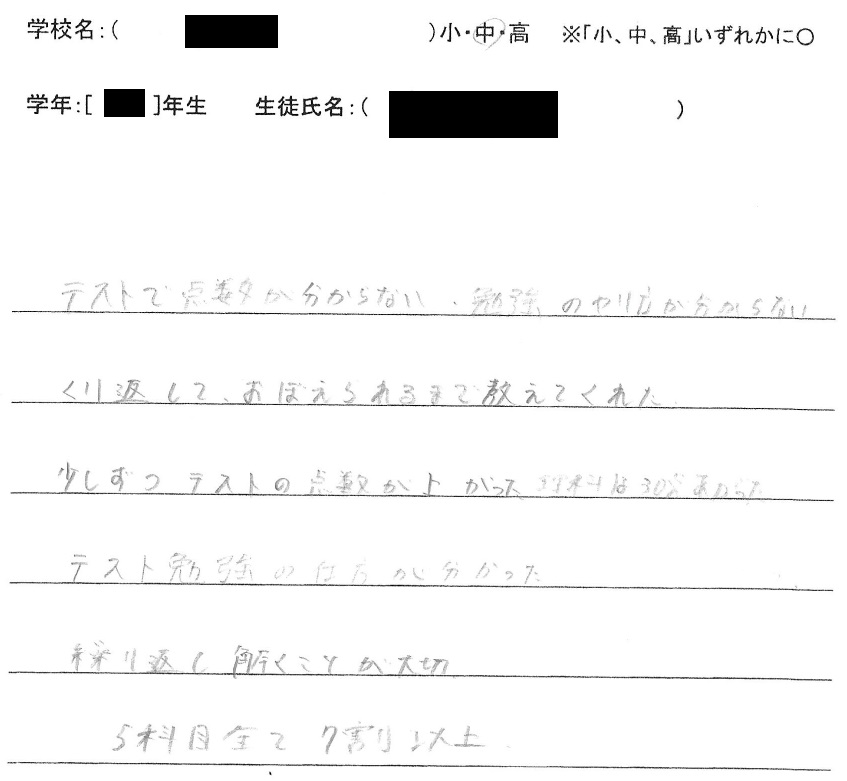 学校名:( )小・中・高 ※「小、中、高」いずれかに○
学年:[ ]年生 生徒氏名:( )
テストで点数が分からない・勉強のやり方が分からない
くり返して、おぼえられるまで教えてくれた
少しずつテストの点数が上がった 理科は30点あがった
テスト勉強の仕方が分かった
繰り返し解くことが大切
5科目全て7割以上